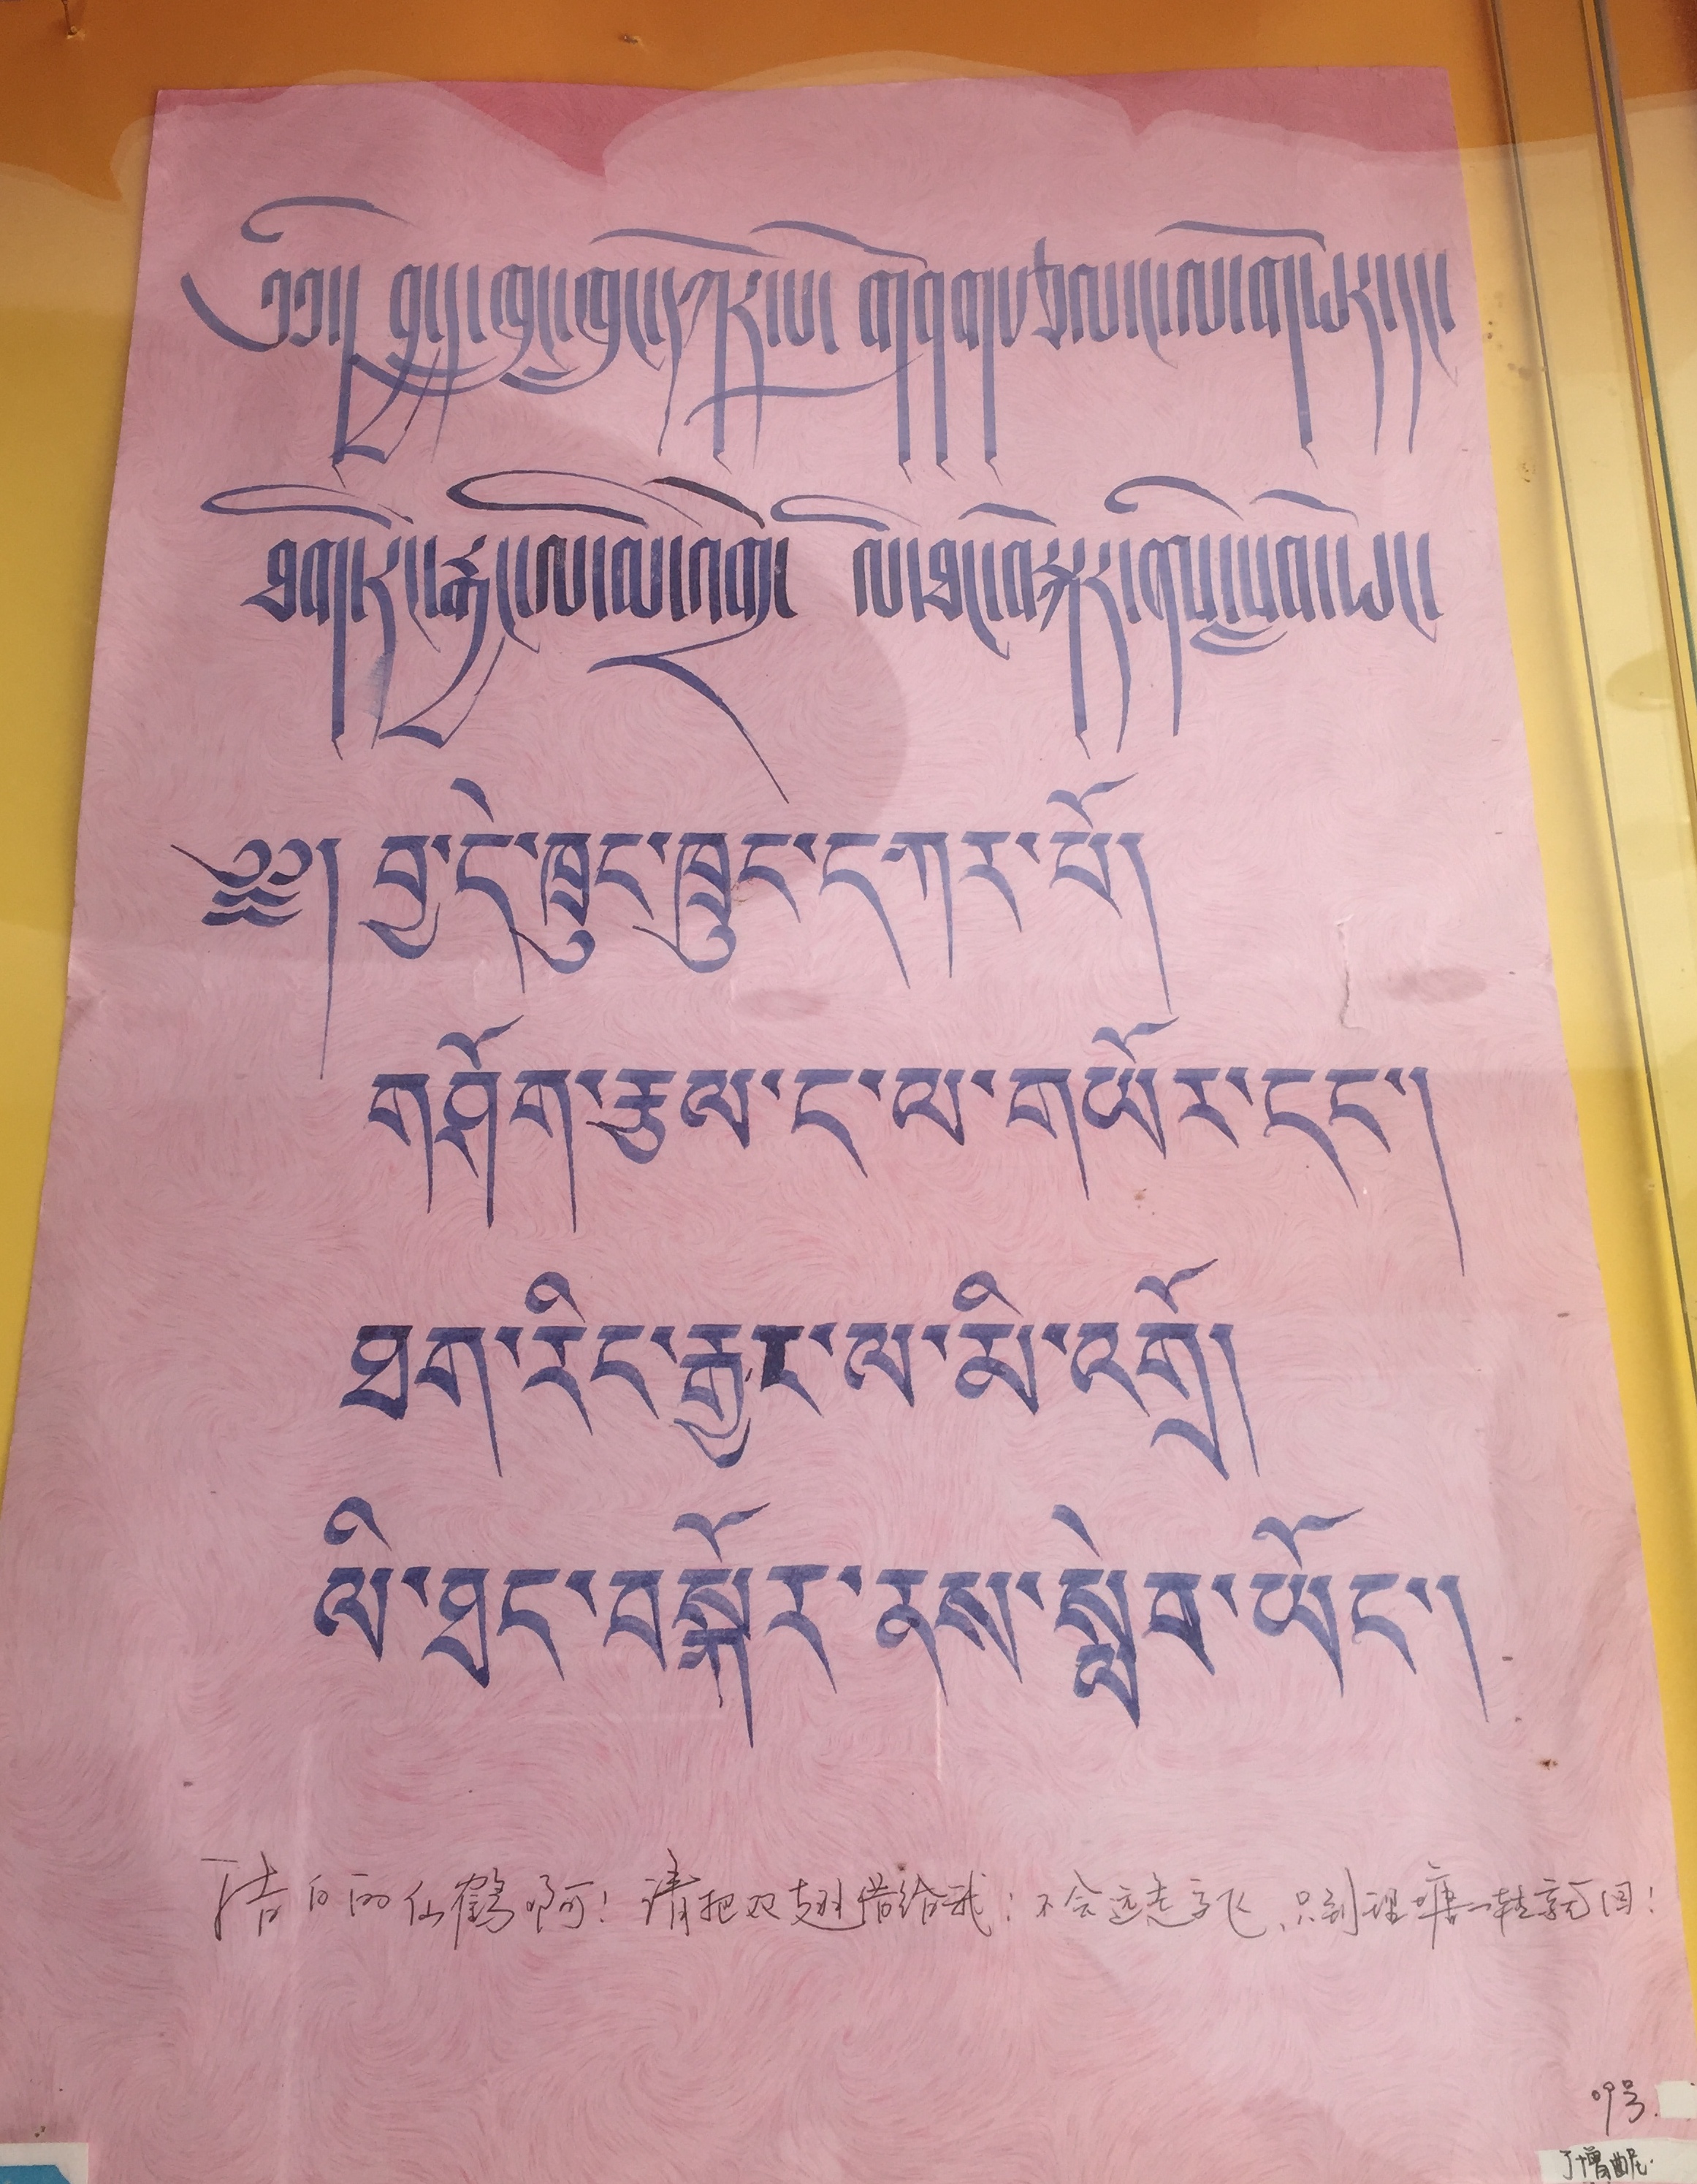 ༄༅།། བྱ་དེ་ཁྲུང་ཁྲུང་དཀར་པོ། གཤོག་རྩལ་ང་ལ་གཡོར་དང་།
ཐག་རིང་རྒྱང་ལ་མི་འགྲོ། ལི་ཐང་བསྐོར་ནས་སླེབ་ཡོང་།
༄༅། བྱ་དེ་ཁྲུང་ཁྲུང་དཀར་པོ།
གཤོག་རྩལ་ང་ལ་གཡོར་དང་།
ཐག་རིང་རྒྱང་ལ་མི་འགྲོ།
ལི་ཐང་བསྐོར་ནས་སླེབ་ཡོང་།
洁白的仙鹤啊!请把双翅借给我:不会远走高飞,只到理塘一转就回!
09号.